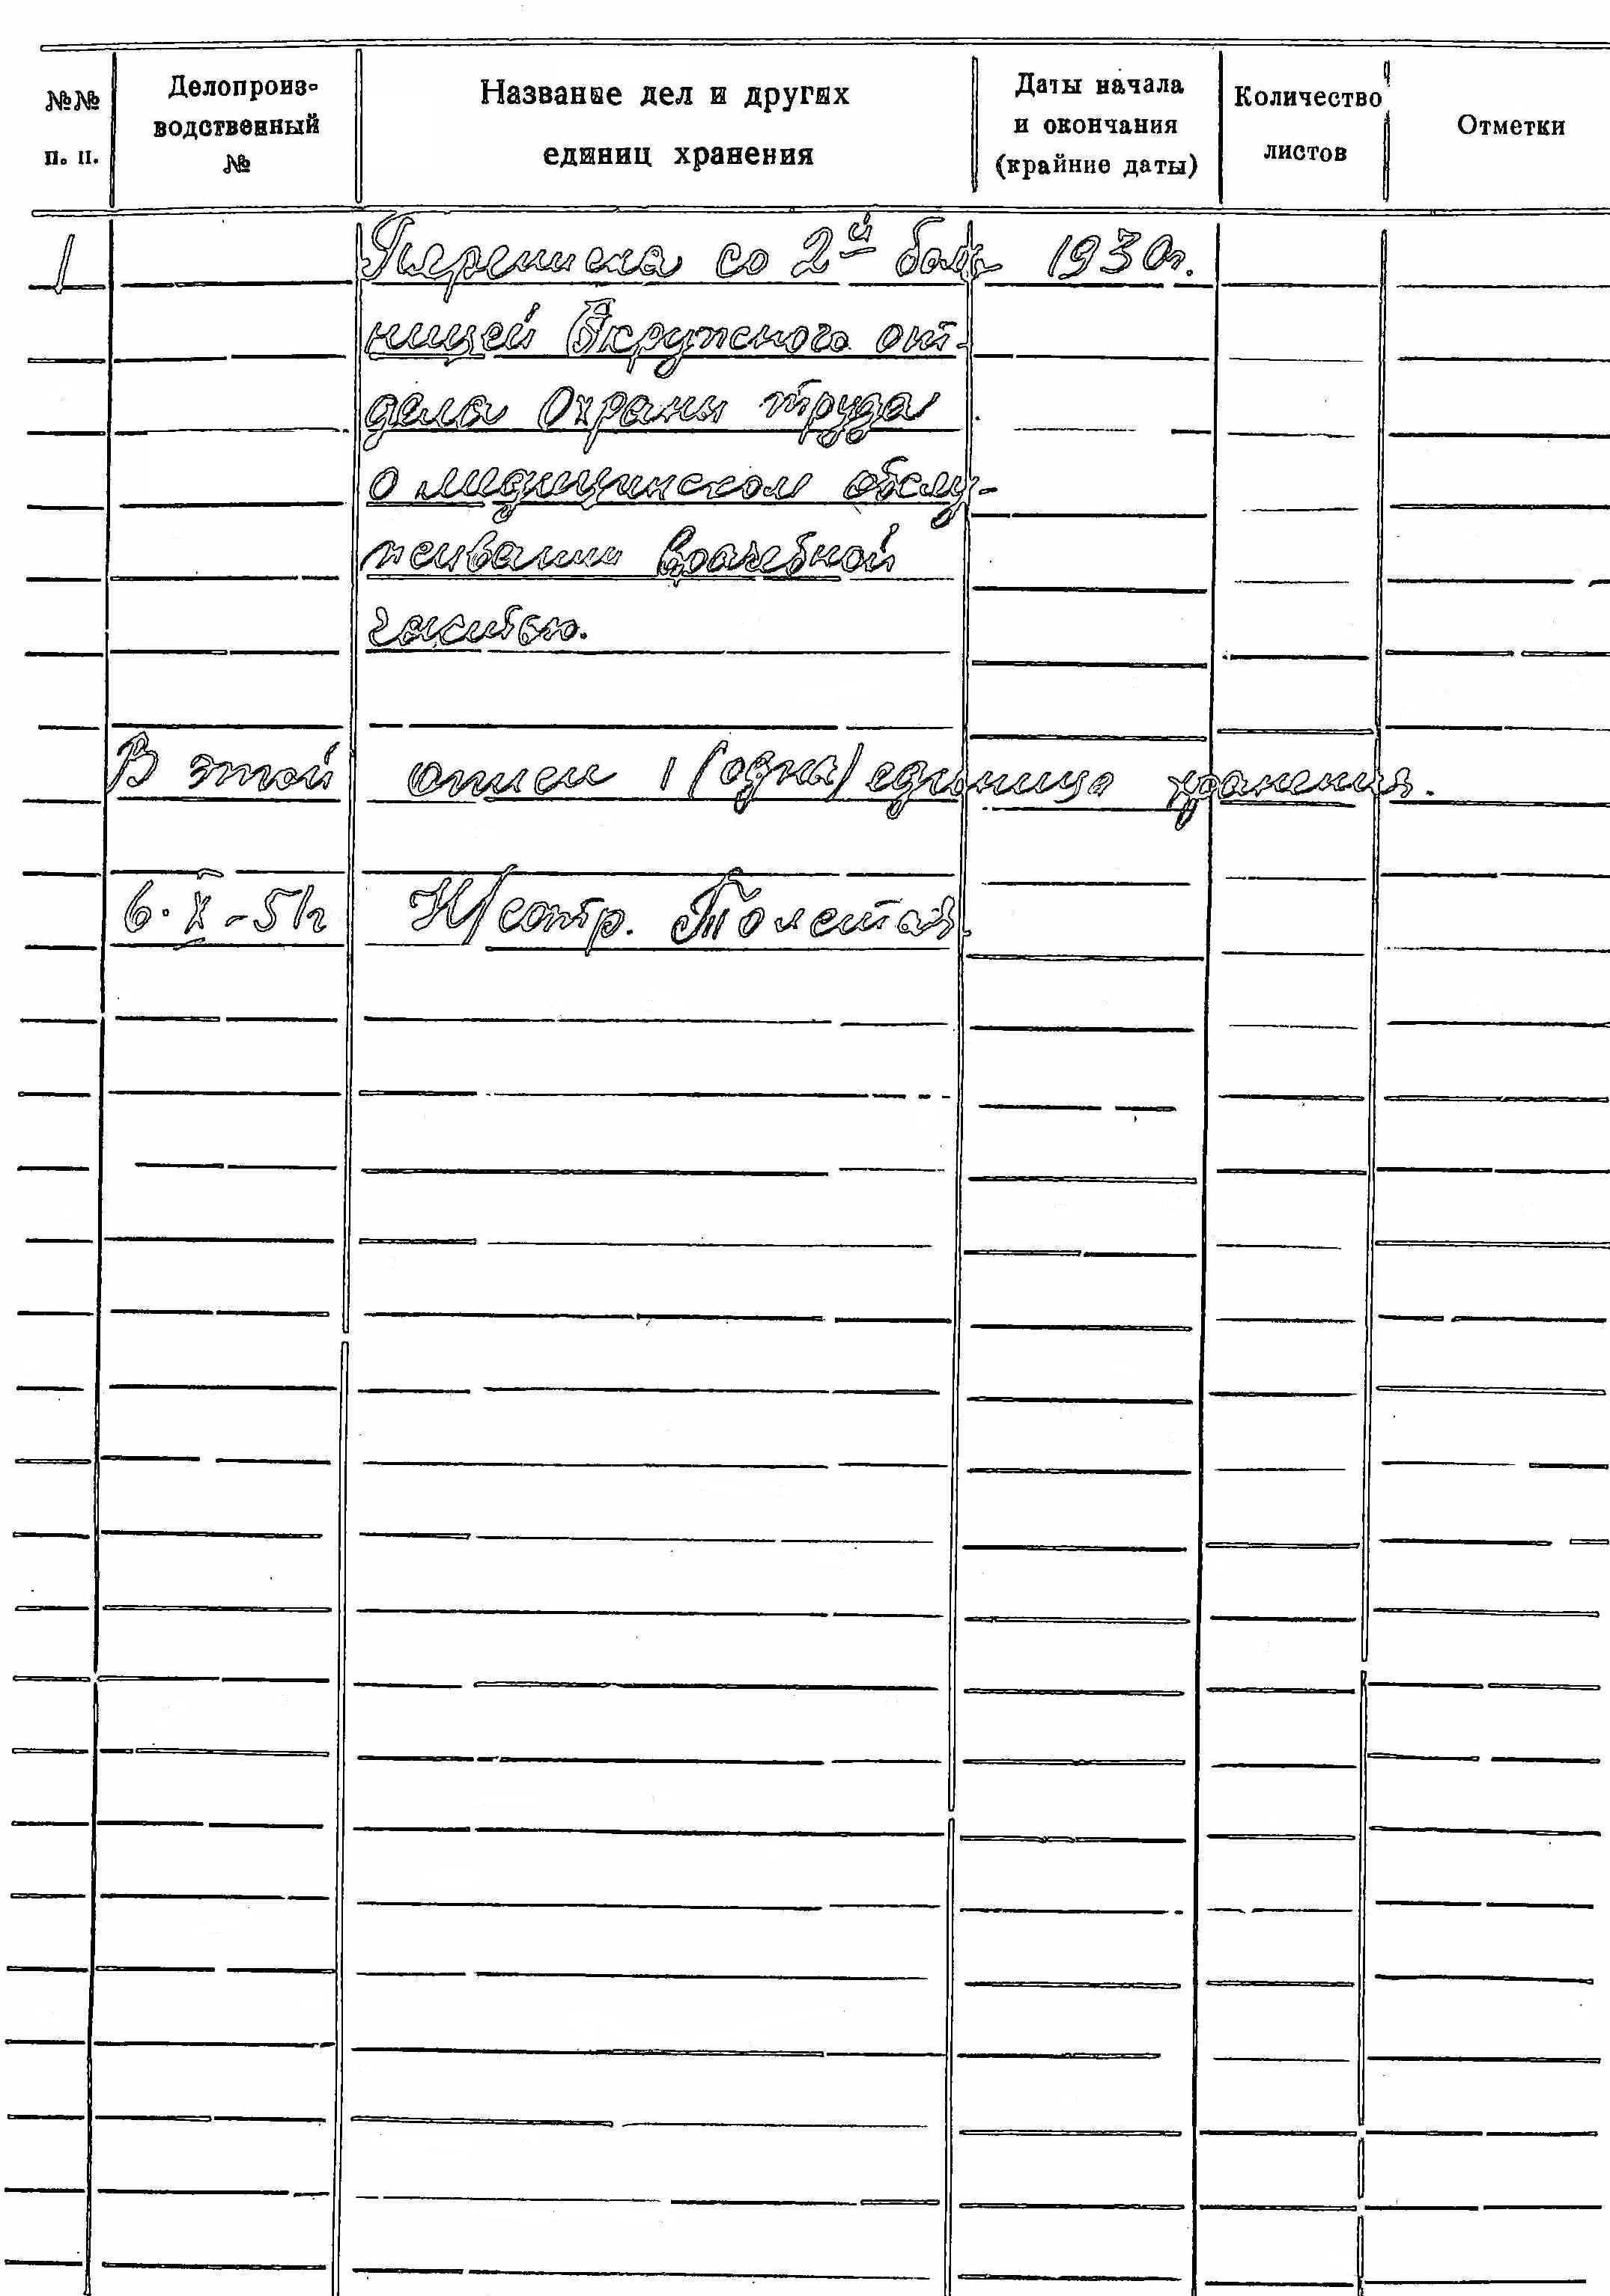 №№ п. п.
Делопроиз-
водственный
№
Название дел и других
единиц хранения
Даты начала
и окончания
(крайние даты)
Количество
листов
Отметки
1 Переписка со 2й боль 1930г.
ницей Окружного от-
дела Охраны труда
о медицинском обслу-
живании врачебной
частью.
В этой описи 1 (одна) единица хранения.
6.X-51г Н/сотр. Толстая